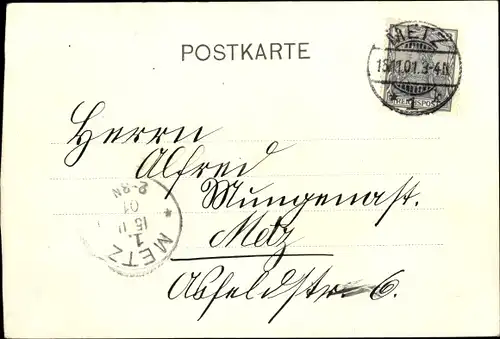 POSTKARTE
METZ
15.11.01.3-4N
* 1 *
REICHSPOST
Herrn
Alfred
Mungenast.
Metz
Asfeldstr. 6.
* METZ
1.
15 11
01
2-3N